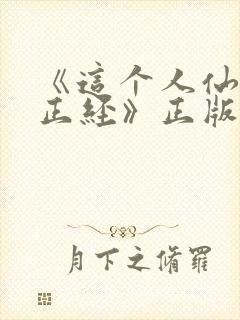 《這个人仙
正經》正版
月下之脩羅